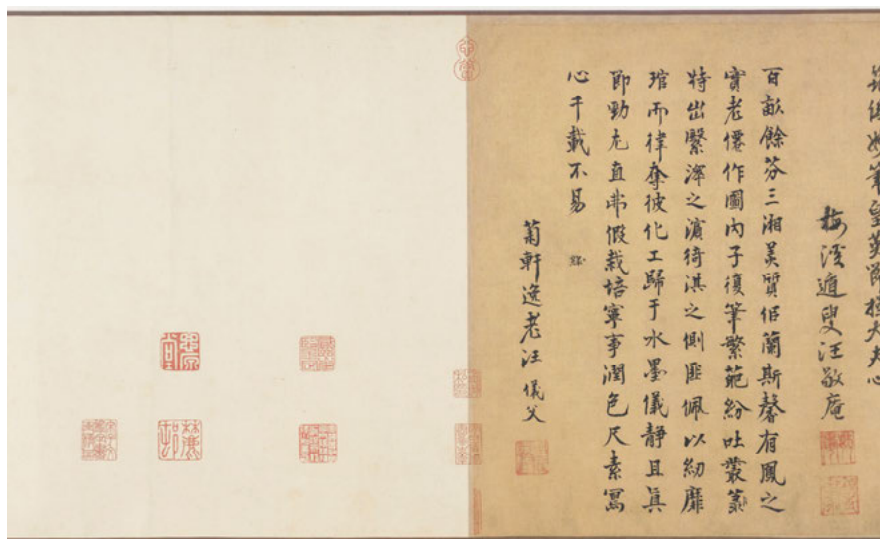 妙筆皇英
大夫心
梅溪遁叟汪敬庵
百畝餘芬三湘美質佀蘭斯馨有鳳之
實老僊作圖內子復筆繁葩紛吐叢
特出繄澤之濱猗淇之側匪佩以紉靡
琯而律奪彼化工歸于水墨儀靜且真
節勁尤直弗假栽培寧事潤色尺素寫
心千載不易
菊軒逸老汪儀父
思原堂
麓邨